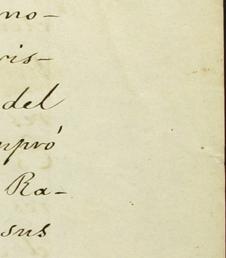 mo-
ris-
del
mpró
Ra-
sus